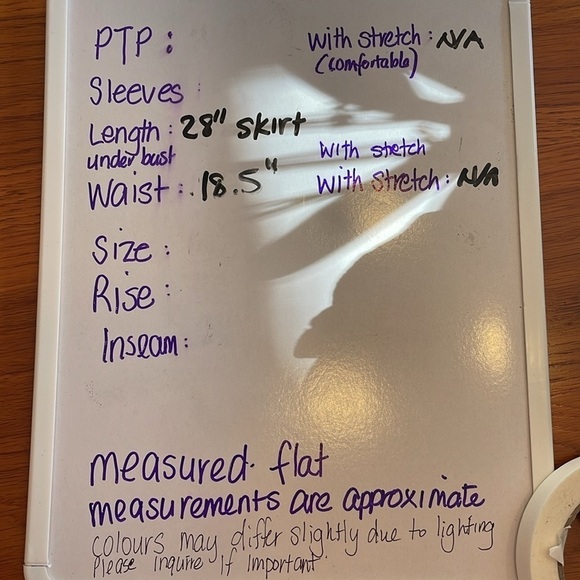 PTP: With stretch: N/A
(comfortable)
Sleeves:
Length: 28" skirt
under bust With stretch
Waist: 18.5" With stretch: N/A
Size:
Rise:
Inseam:
measured flat
measurements are approximate
colours may differ slightly due to lighting
Please inquire if important